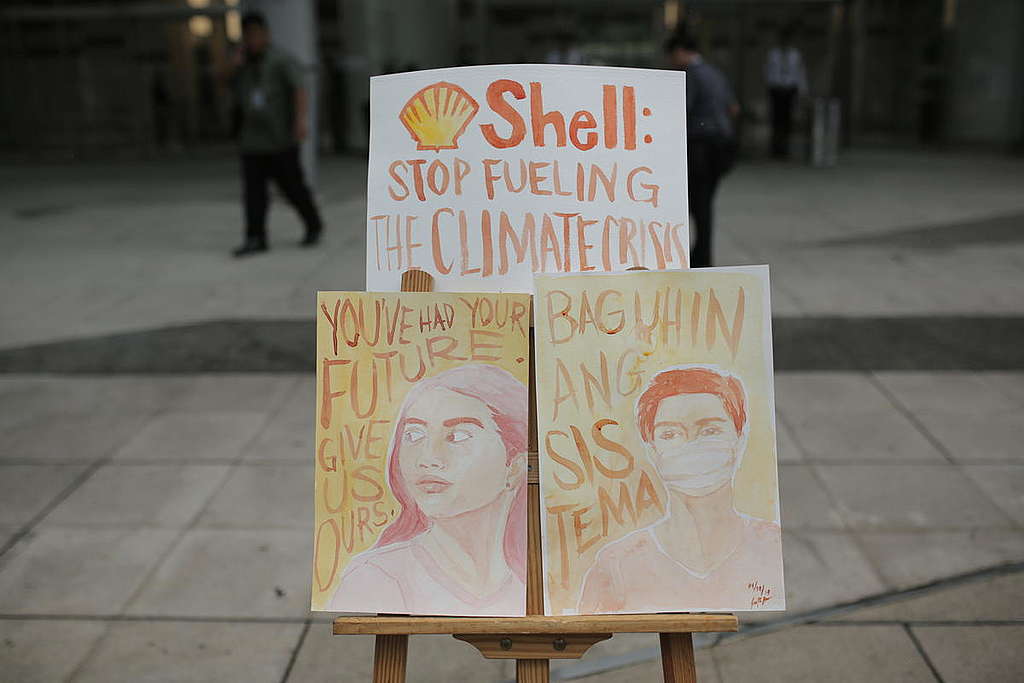 Shell:
STOP FUELING
THE CLIMATE CRISIS
YOU'VE HAD YOUR
FUTURE.
GIVE
US
OURS.
BAGUHIN
ANG
SIS
TEMA